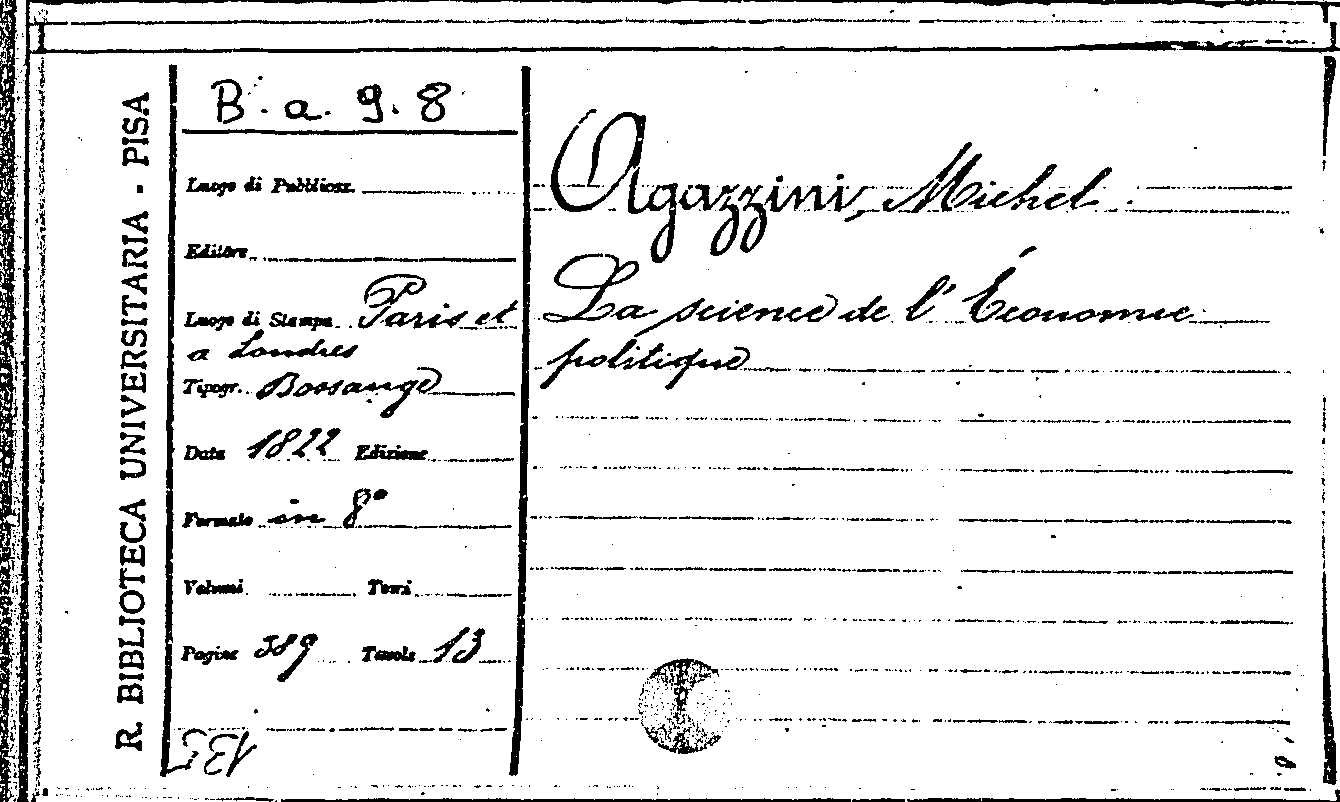 R. BIBLIOTECA UNIVERSITARIA - PISA
B. a. 9. 8
Luogo di Pubblicaz.
Editore
Luogo di Stampa Paris et
a Londres
Tipogr. Bossange
Data 1822 Edizione
Formato in 8°
Volumi Tomi
Pagine 389 Tavole 13
Agazzini, Michel
La science de l'Économie
politique